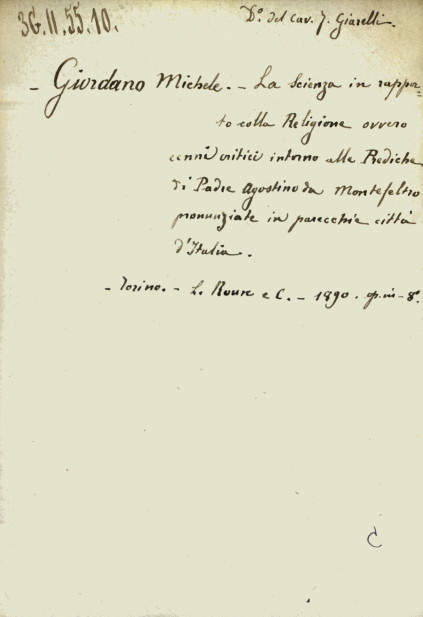 3G.II.55.10.
D.º del cav. F. Giarelli.
- Giordano Michele. - La scienza in rappor=
to colla Religione ovvero
cenni critici intorno alle Prediche
di Padre Agostino da Montefeltro
pronunziate in parecchie città
d'Italia.
- Torino. - L. Roure e C. - 1890. op. in-8º
C